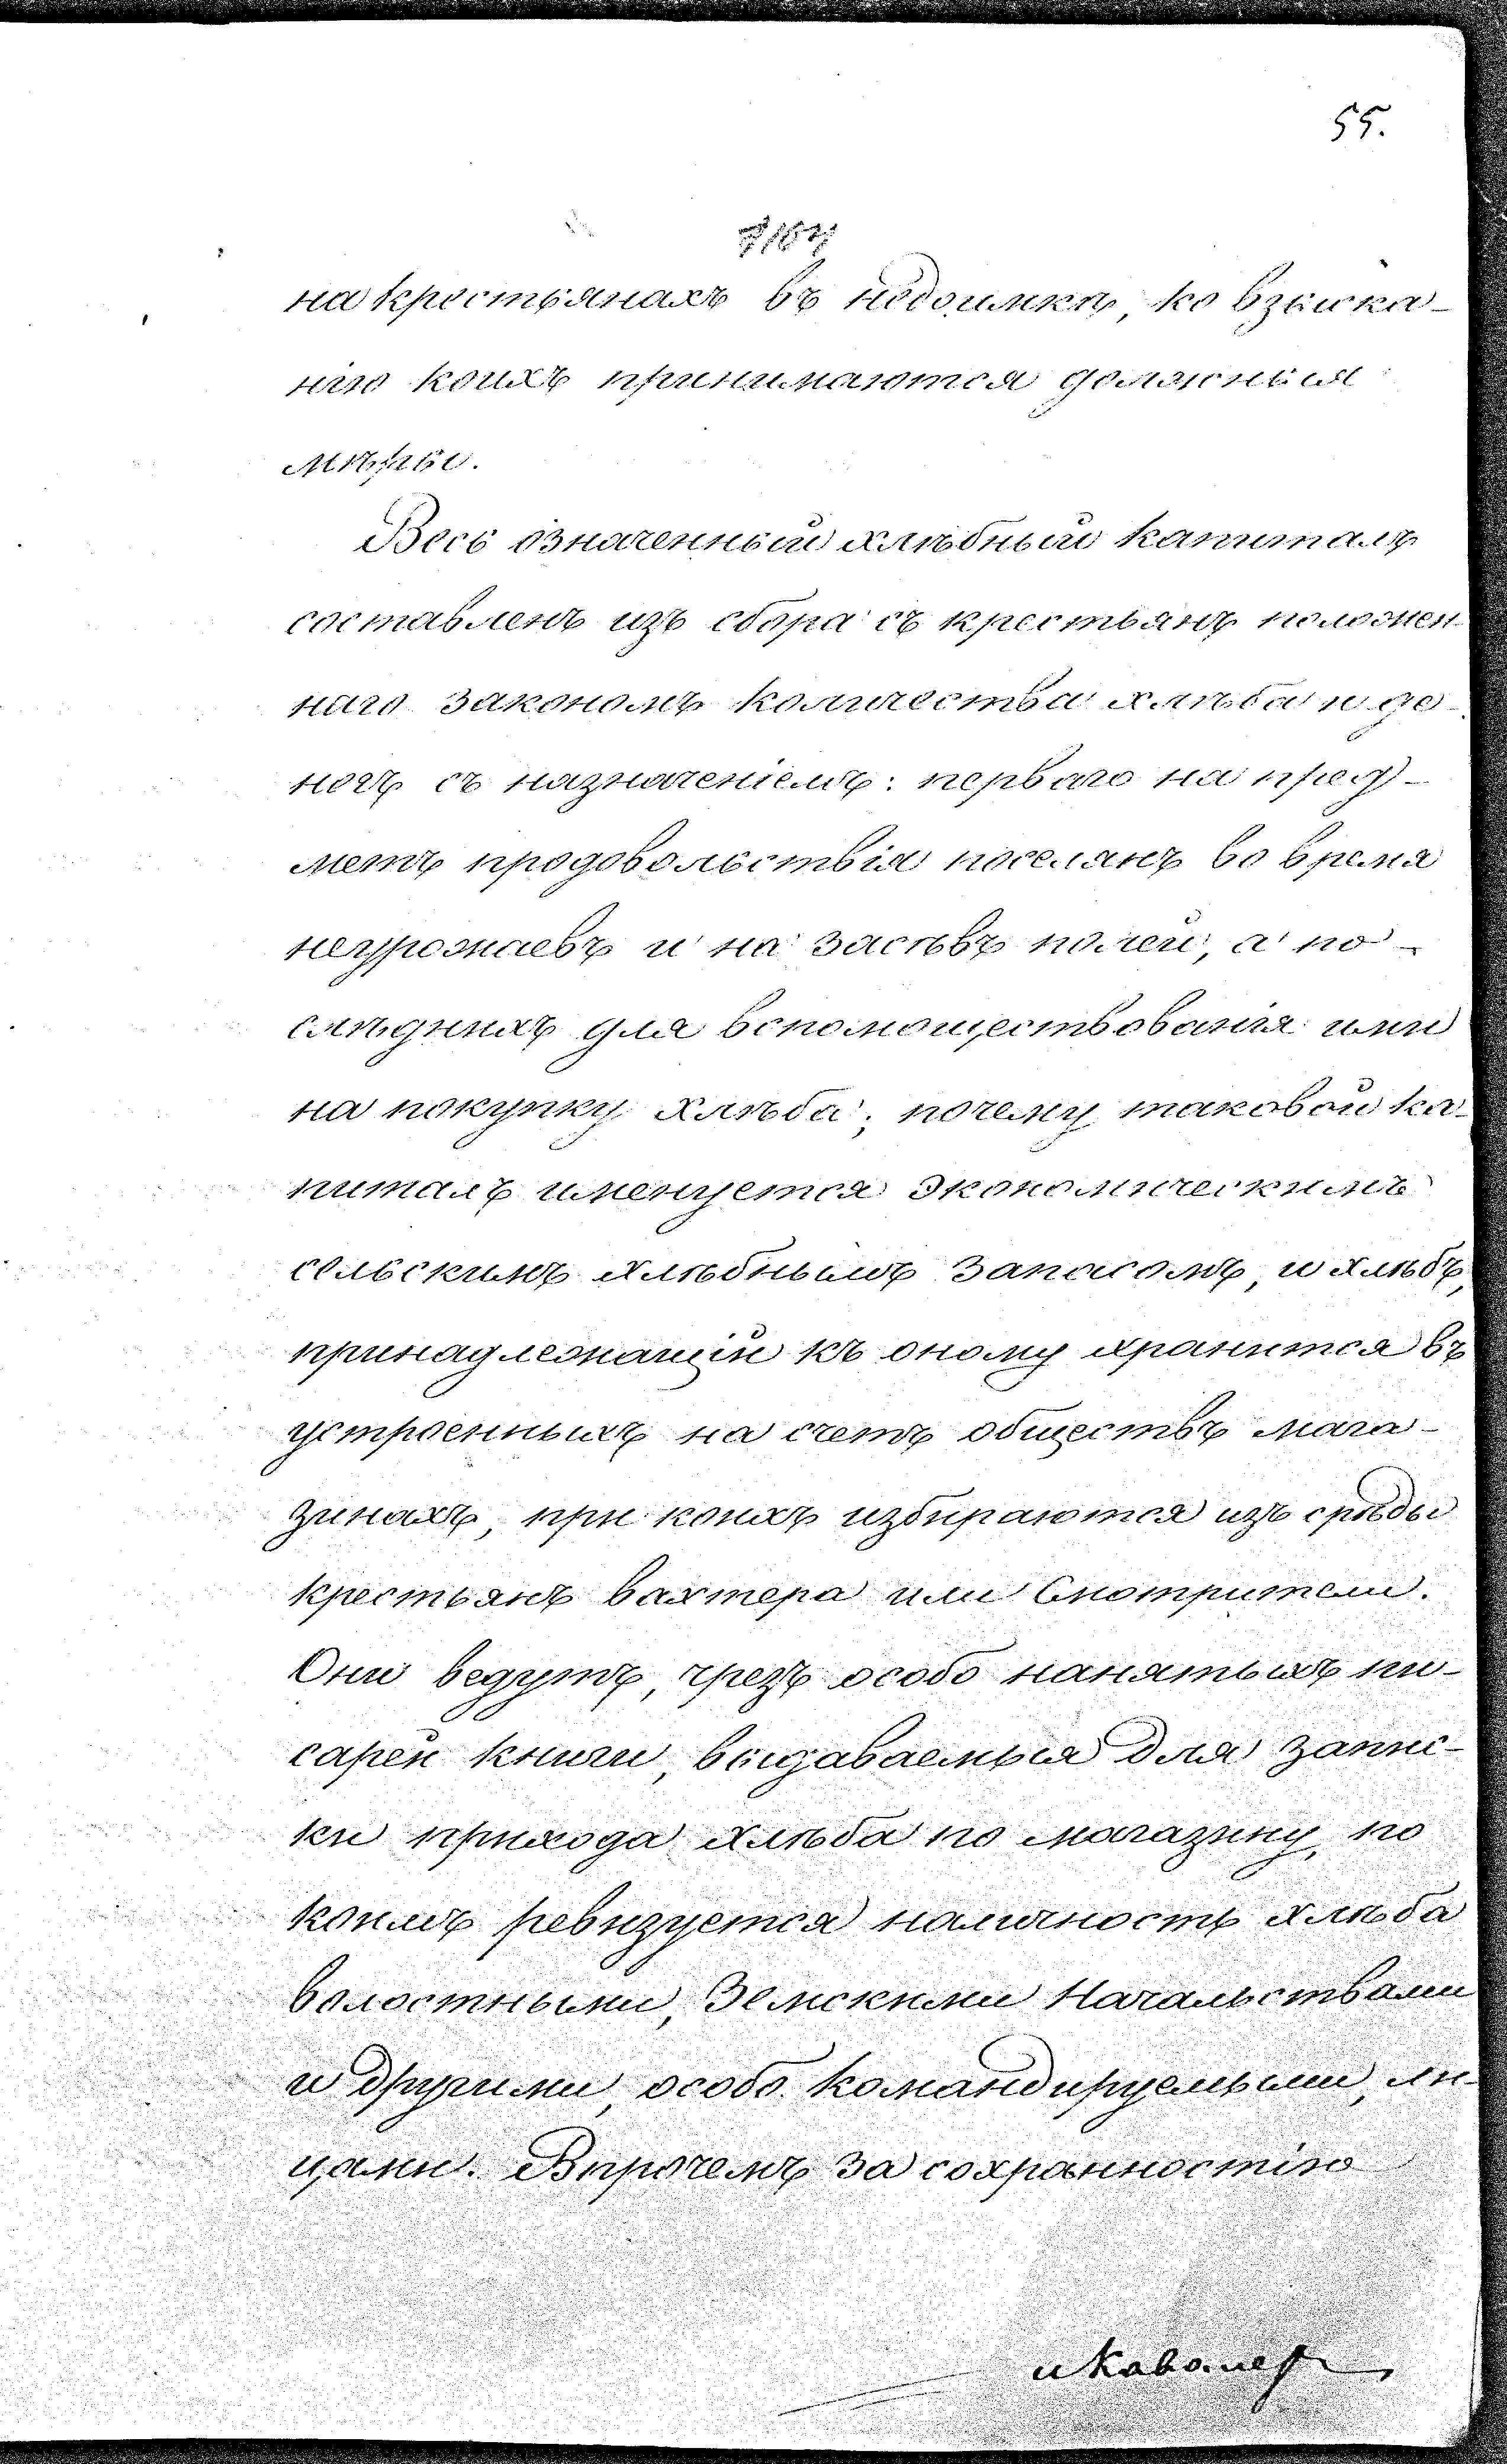 55.
на крестьянахъ въ недоимкѣ, ко взыска-
нію коихъ принимаются должныя
мѣры.
Весь означенный хлѣбный капиталъ
составленъ изъ сбора съ крестьянъ положен-
наго закономъ количества хлѣба и де-
негъ съ назначеніемъ: перваго на пред-
метъ продовольствія поселянъ во время
неурожаевъ и на засѣвъ полей, а по-
слѣднихъ для вспомоществованія имъ
на покупку хлѣба; почему таковой ка-
питалъ именуется экономическимъ
сельскимъ хлѣбнымъ запасомъ, и хлѣбъ,
принадлежащій къ оному хранится въ
устроенныхъ на счетъ обществъ мага-
зинахъ, при коихъ избираются изъ среды
крестьянъ вахтера или Смотрители.
Они ведутъ, чрезъ особо нанятыхъ пи-
сарей книги, выдаваемыя для запис-
ки прихода хлѣба по магазину, по
коимъ ревизуется наличность хлѣба
волостными, Земскими Начальствами
и другими, особо командируемыми, ли-
цами. Впрочемъ за сохранностію
и Кавалеръ